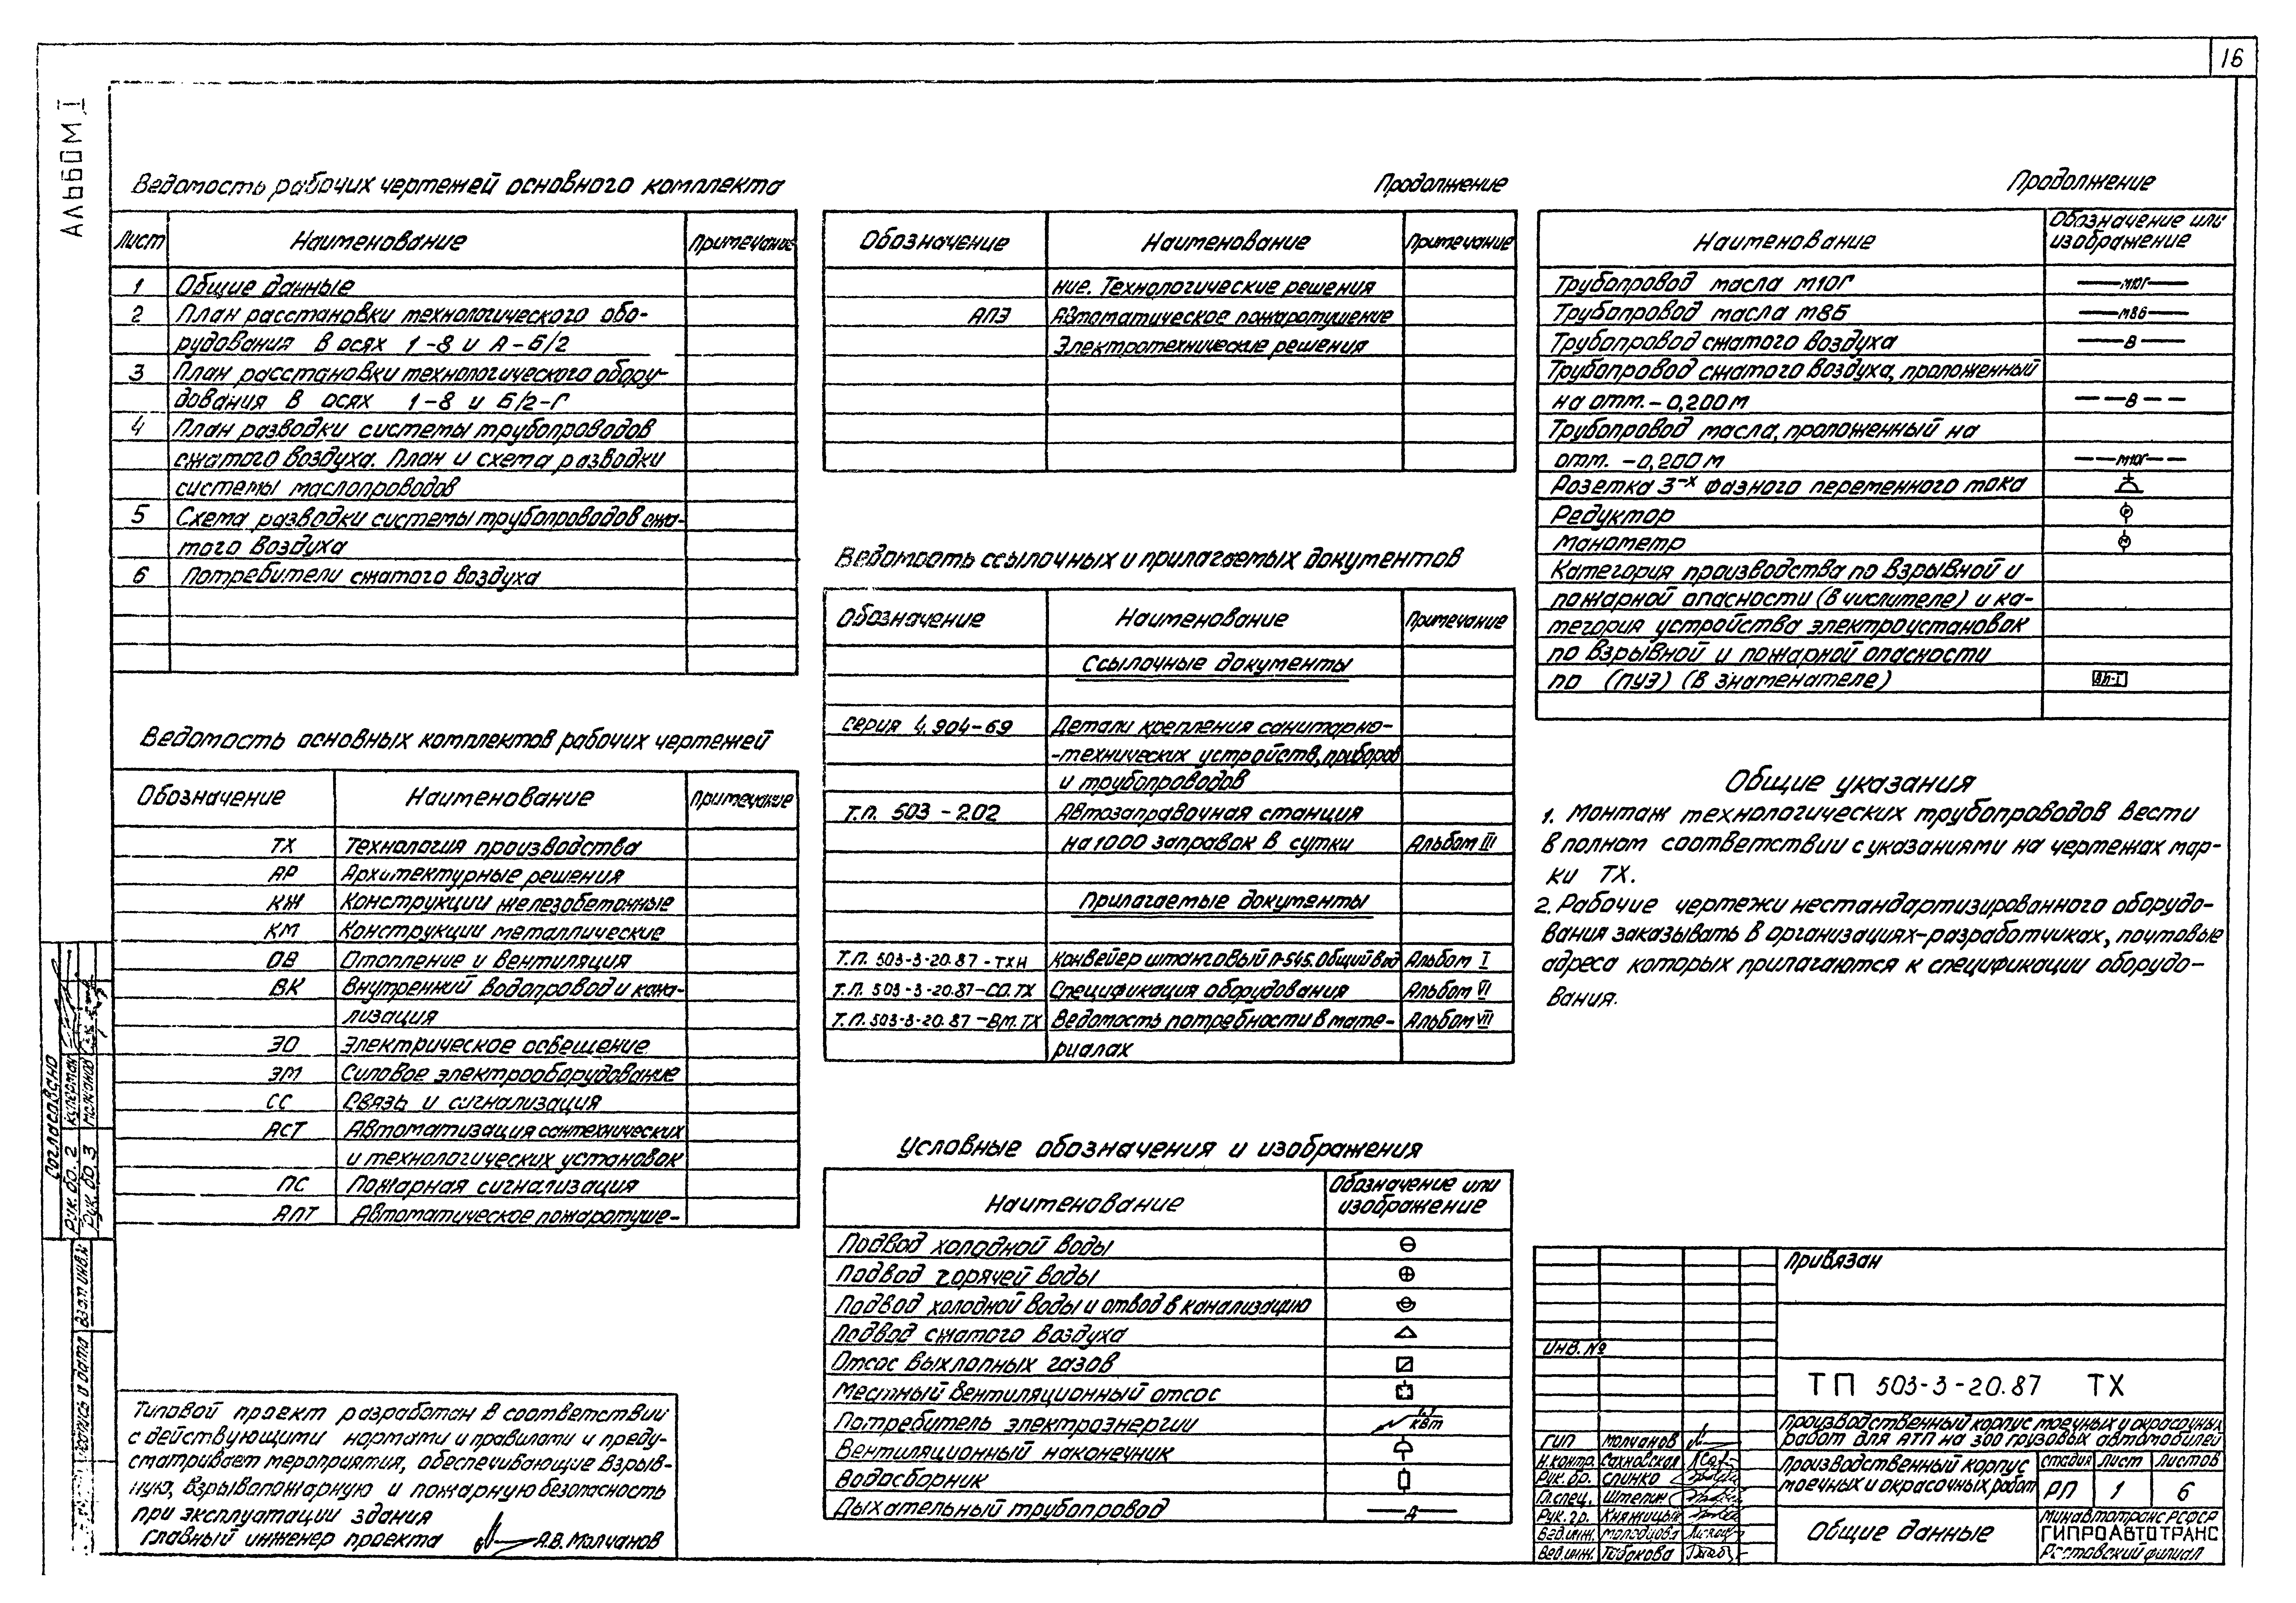 16
АЛЬБОМ I
Ведомость рабочих чертежей основного комплекта
Лист Наименование Примечание
1 Общие данные
2 План расстановки технологического обо-
рудования в осях 1-8 и А-Б/2
3 План расстановки технологического обору-
дования в осях 1-8 и Б/2-Г
4 План разводки системы трубопроводов
сжатого воздуха. План и схема разводки
системы маслопроводов
5 Схема разводки системы трубопроводов сжа-
того воздуха
6 Потребители сжатого воздуха
Ведомость основных комплектов рабочих чертежей
Обозначение Наименование Примечание
ТХ Технология производства
АР Архитектурные решения
КЖ Конструкции железобетонные
КМ Конструкции металлические
ОВ Отопление и вентиляция
ВК Внутренний водопровод и кана-
лизация
ЭО Электрическое освещение
ЭМ Силовое электрооборудование
СС Связь и сигнализация
АСТ Автоматизация сантехнических
и технологических установок
ПС Пожарная сигнализация
АПТ Автоматическое пожаротуше-
Типовой проект разработан в соответствии
с действующими нормами и правилами и преду-
сматривает мероприятия, обеспечивающие взрыв-
ную, взрывопожарную и пожарную безопасность
при эксплуатации здания
Главный инженер проекта А.В. Молчанов
Продолжение
Обозначение Наименование Примечание
ние. Технологические решения
АПЭ Автоматическое пожаротушение
Электротехнические решения
Ведомость ссылочных и прилагаемых документов
Обозначение Наименование Примечание
Ссылочные документы
серия 4.904-69 Детали крепления санитарно-
-технических устройств, приборов
и трубопроводов
Т.П. 503-202 Автозаправочная станция
на 1000 заправок в сутки Альбом III
Прилагаемые документы
Т.П. 503-3-20.87-ТХН Конвейер штанговый П-545. Общий вид Альбом I
Т.П. 503-3-20.87-СО.ТХ Спецификация оборудования Альбом VI
Т.П. 503-3-20.87-ВМ.ТХ Ведомость потребности в мате- Альбом VII
риалах
Условные обозначения и изображения
Наименование Обозначение или
изображение
Подвод холодной воды
Подвод горячей воды
Подвод холодной воды и отвод в канализацию
Подвод сжатого воздуха
Отсос выхлопных газов
Местный вентиляционный отсос
Потребитель электроэнергии кВт
Вентиляционный наконечник
Водосборник
Дыхательный трубопровод Д
Продолжение
Наименование Обозначение или
изображение
Трубопровод масла М10Г М10Г
Трубопровод масла М8Б М8Б
Трубопровод сжатого воздуха В
Трубопровод сжатого воздуха, проложенный
на отм. -0,200м В
Трубопровод масла, проложенный на
отм. -0,200м М10Г
Розетка 3-х фазного переменного тока
Редуктор
Манометр
Категория производства по взрывной и
пожарной опасности (в числителе) и ка-
тегория устройства электроустановок
по взрывной и пожарной опасности
по (ПУЭ) (в знаменателе)
Общие указания
1. Монтаж технологических трубопроводов вести
в полном соответствии с указаниями на чертежах мар-
ки ТХ.
2. Рабочие чертежи нестандартизированного оборудо-
вания заказывать в организациях-разработчиках, почтовые
адреса которых прилагаются к спецификации оборудо-
вания.
Привязан
Инв. №
ТП 503-3-20.87 ТХ
Производственный корпус моечных и окрасочных
работ для АТП на 300 грузовых автомобилей
ГИП Молчанов
Н.контр. Сахновская
Рук. бр. Слинко
Гл.спец. Штепин
Рук. гр.
Вед.инж.
Вед.инж.
Производственный корпус
моечных и окрасочных работ
Стадия Лист Листов
РП 1 6
Общие данные
Минавтотранс РСФСР
ГИПРОАВТОТРАНС
Ростовский филиал
Согласовано
Рук. бр. 2
Рук. бр. 3 Молчанов
Взам. инв. №
Подпись и дата